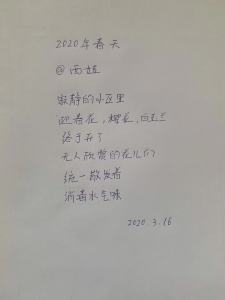 2020年春天
@西娃
寂静的小区里
迎春花,樱花,白玉兰
终于开了
无人欣赏的花儿们
统一散发着
消毒水气味
2020.3.16